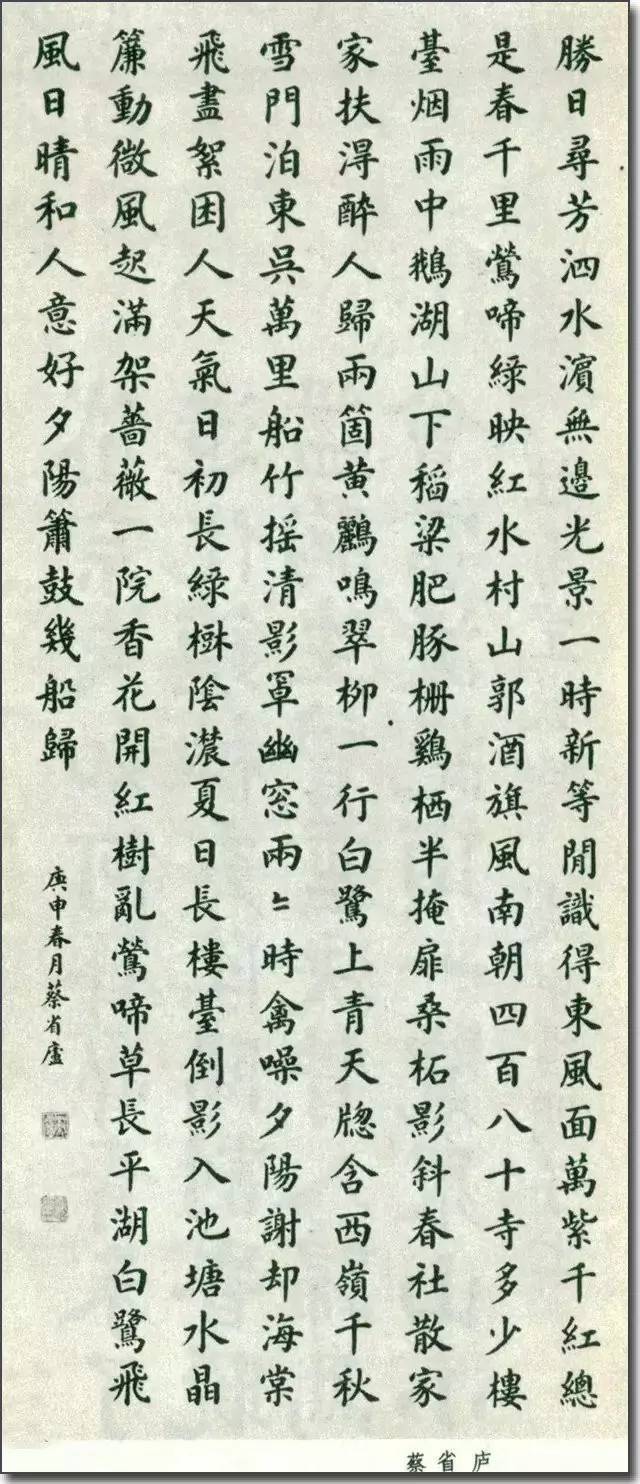 勝日尋芳泗水濱無邊光景一時新等閒識得東風面萬紫千紅總
是春千里鶯啼綠映紅水村山郭酒旗風南朝四百八十寺多少樓
臺烟雨中鵝湖山下稻粱肥豚柵鷄栖半掩扉桑柘影斜春社散家
家扶得醉人歸兩箇黃鸝鳴翠柳一行白鷺上青天牕含西嶺千秋
雪門泊東吳萬里船竹搖清影罩幽窓兩〻時禽噪夕陽謝却海棠
飛盡絮困人天氣日初長綠樹陰濃夏日長樓臺倒影入池塘水晶
簾動微風起滿架薔薇一院香花開紅樹亂鶯啼草長平湖白鷺飛
風日晴和人意好夕陽簫鼓幾船歸
庚申春月蔡省廬
蔡省庐